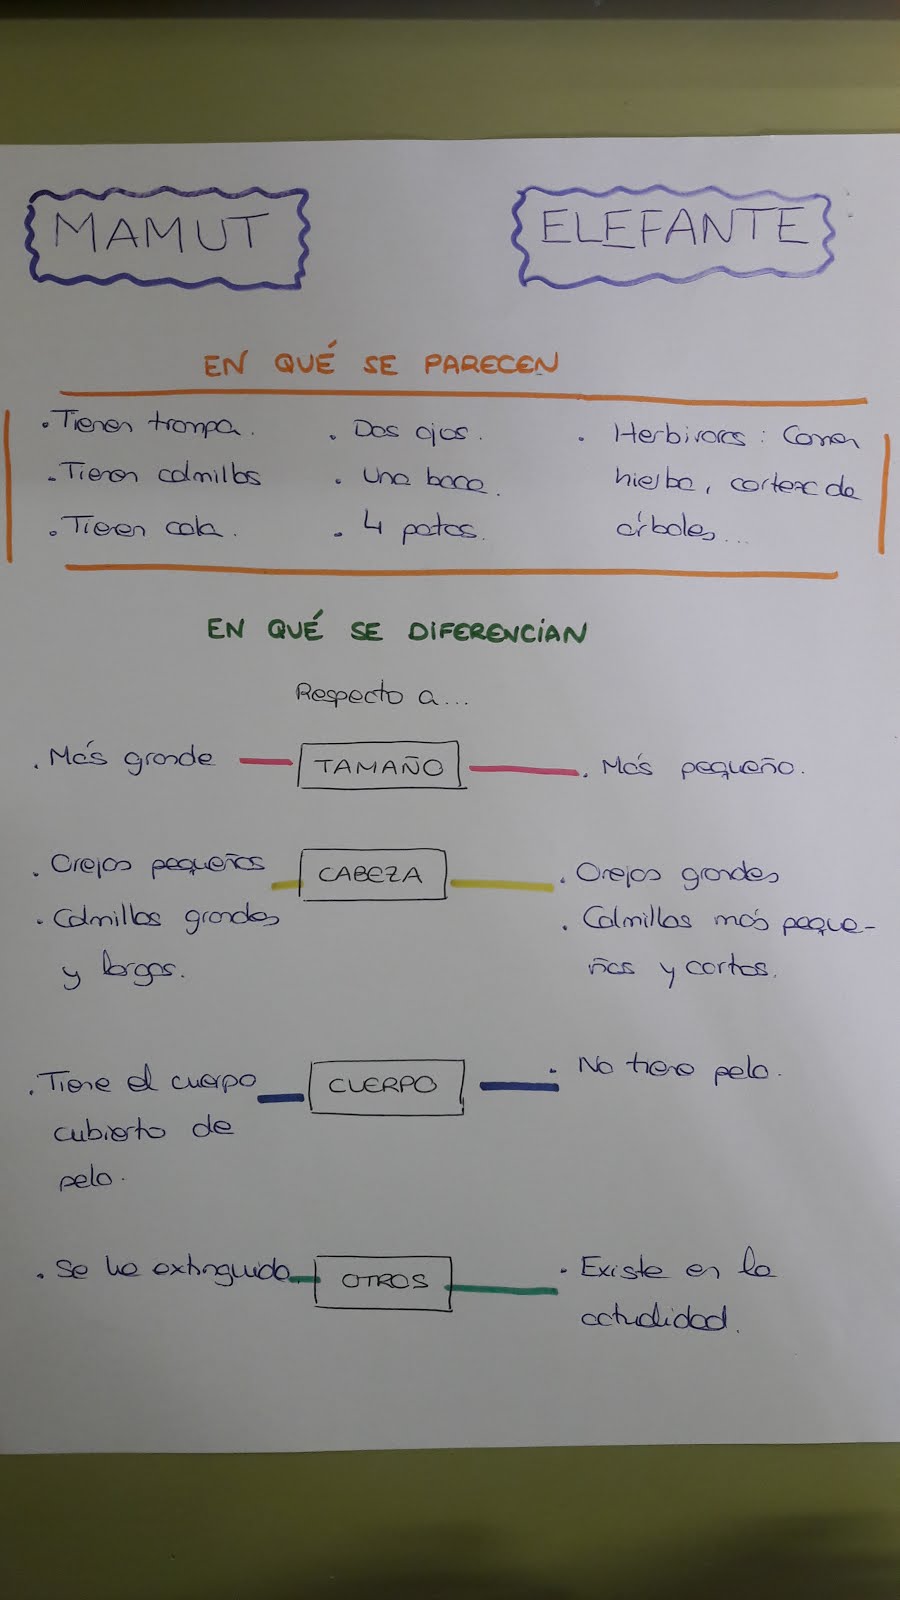 MAMUT
ELEFANTE
EN QUÉ SE PARECEN
. Tienen trompa.
. Tienen colmillos
. Tienen cola.
. Dos ojos.
. Una boca.
. 4 patas.
. Herbívoros: Comen
hierba, corteza de
árboles...
EN QUÉ SE DIFERENCIAN
Respecto a...
. Más grande
TAMAÑO
. Más pequeño.
. Orejas pequeñas
. Colmillos grandes
y largos.
CABEZA
. Orejas grandes
. Colmillos más peque-
ños y cortos.
. Tiene el cuerpo
cubierto de
pelo.
CUERPO
. No tiene pelo.
. Se ha extinguido
OTROS
. Existe en la
actualidad.